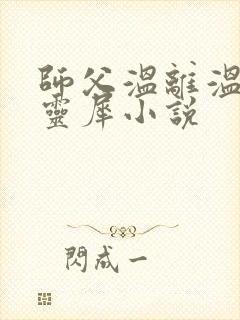 師父溫離溫
靈犀小說
閃成一